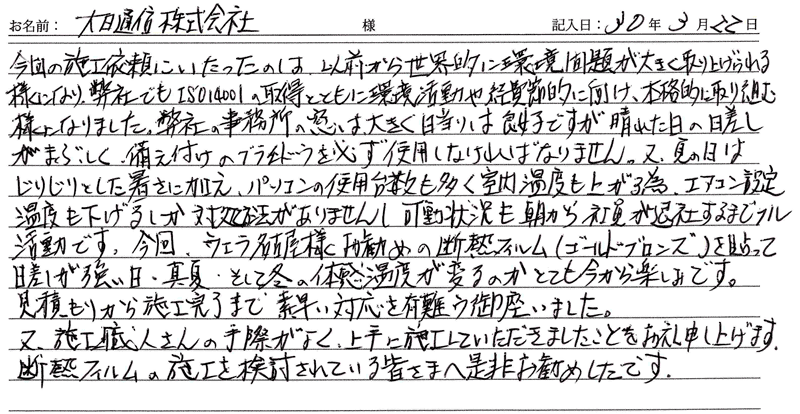 お名前： 大日通信株式会社 様 記入日：30年3月22日
今回の施工依頼にいたったのは、以前から世界的に環境問題が大きく取り上げられる
様になり、弊社でもISO14001の取得とともに環境活動や経費節約に向け、本格的に取り組む
様になりました。弊社の事務所の窓は大きく日当りは良好ですが晴れた日の日差し
がまぶしく、備え付けのブラインドーを必ず使用しなければなりません。又、夏の日は
じりじりとした暑さに加え、パソコンの使用台数も多く室内温度も上がる為、エアコン設定
温度も下げるしか対処法がありませんし可動状況も朝から社員が退社するまでフル
活動です。今回、ウェラ名古屋様にお勧めの断熱フィルム(ゴールドブロンズ)を貼って
日差しが強い日・真夏・そして冬の体感温度が変るのがとても今から楽しみです。
見積もりから施工完了まで素早い対応を有難う御座いました。
又、施工職人さんの手際がよく、上手に施工していただきましたことをお礼申し上げます。
断熱フィルムの施工を検討されている皆さまへ是非お勧めしたです。